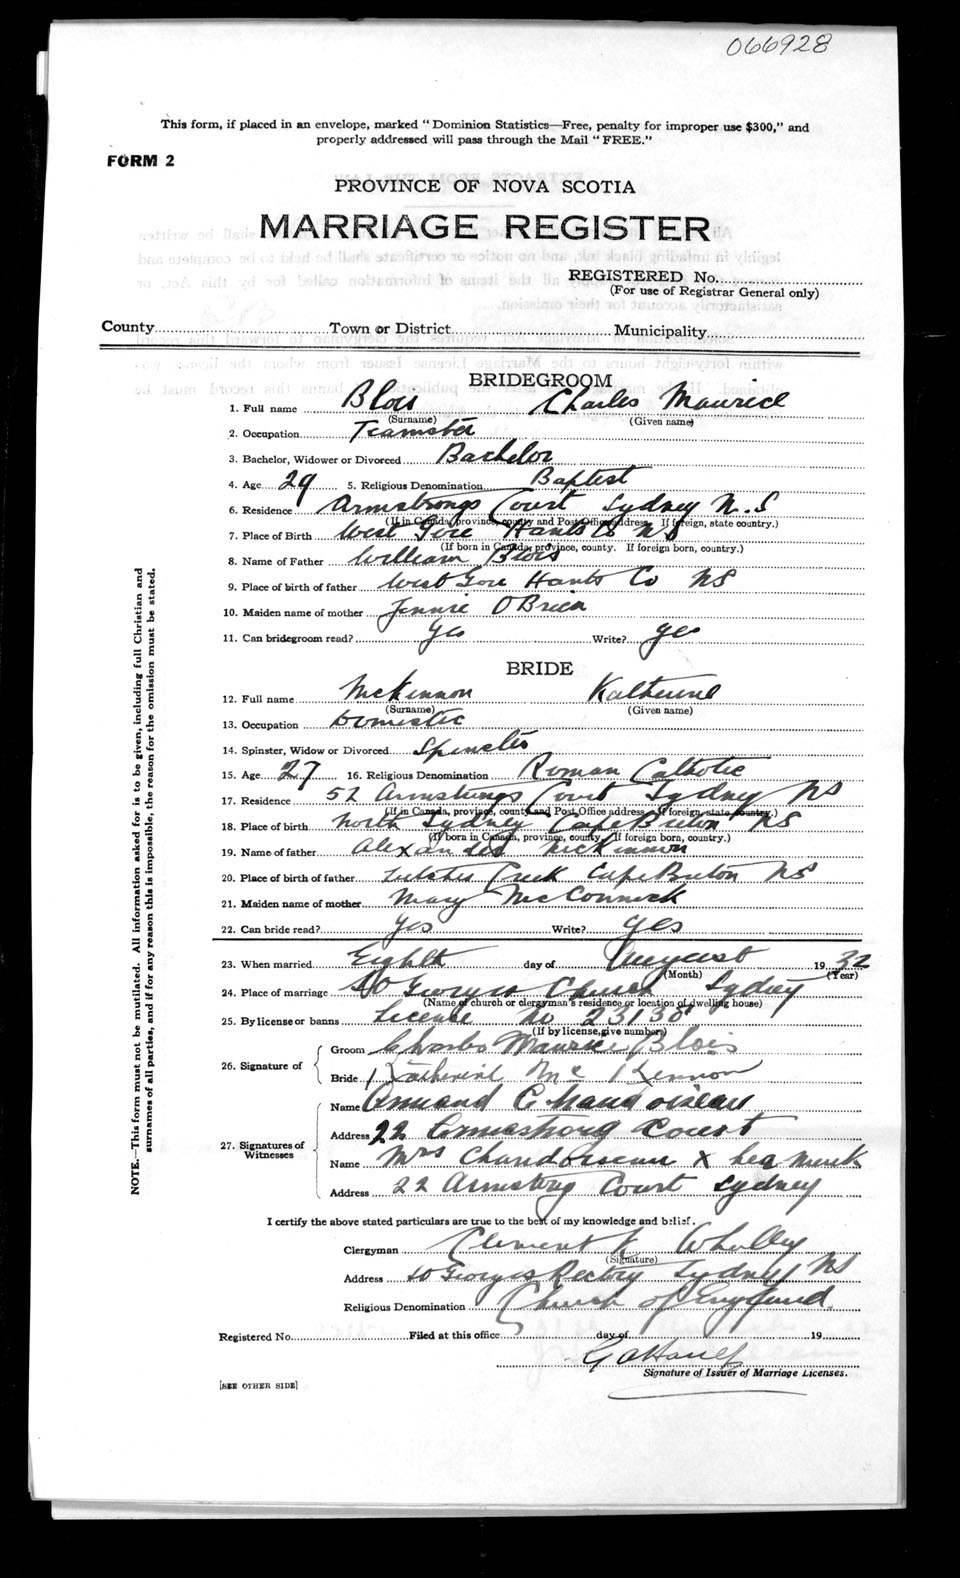 066928
This form, if placed in an envelope, marked "Dominion Statistics—Free, penalty for improper use $300," and
properly addressed will pass through the Mail "FREE."
FORM 2
PROVINCE OF NOVA SCOTIA
MARRIAGE REGISTER
REGISTERED No.
(For use of Registrar General only)
County Town or District Municipality
BRIDEGROOM
1. Full name Blois Charles Maurice
(Surname) (Given name)
2. Occupation Teamster
3. Bachelor, Widower or Divorced Bachelor
4. Age 29 5. Religious Denomination Baptist
6. Residence Armstrongs Court Sydney N.S
(If in Canada, province, county and Post Office address. If foreign, state country.)
7. Place of Birth West Gore Hants Co NS
(If born in Canada, province, county. If foreign born, country.)
8. Name of Father William Blois
9. Place of birth of father West Gore Hants Co NS
10. Maiden name of mother Jennie OBrien
11. Can bridegroom read? Yes Write? Yes
BRIDE
12. Full name McKinnon Katherine
(Surname) (Given name)
13. Occupation Domestic
14. Spinster, Widow or Divorced Spinster
15. Age 27 16. Religious Denomination Roman Catholic
17. Residence 52 Armstrongs Court Sydney NS
(If in Canada, province, county and Post Office address. If foreign, state country.)
18. Place of birth North Sydney Cape Breton NS
(If born in Canada, province, county. If foreign born, country.)
19. Name of father Alexander McKinnon
20. Place of birth of father Creek Cape Breton NS
21. Maiden name of mother Mary McCormick
22. Can bride read? Yes Write? Yes
23. When married Eighth day of August 1932
(Month) (Year)
24. Place of marriage St Georges Church Sydney
(Name of church or clergyman's residence or location of dwelling house)
25. By license or banns License No 23138
(If by license, give number)
26. Signature of
Groom Charles Maurice Blois
Bride Katherine Mc Kennon
27. Signatures of Witnesses
Name Armand Chandoiseau
Address 22 Armstrong Court
Name Mrs Chandoiseau X her mark
Address 22 Armstrong Court Sydney
I certify the above stated particulars are true to the best of my knowledge and belief.
Clergyman Clement Whalley
(Signature)
Address St Georges Rectory Sydney NS
Religious Denomination Church of England
Registered No. Filed at this office day of 19
Signature of Issuer of Marriage Licenses.
[SEE OTHER SIDE]
NOTE.—This form must not be mutilated. All information asked for is to be given, including full Christian and
surnames of all parties, and if for any reason this is impossible, the reason for the omission must be stated.